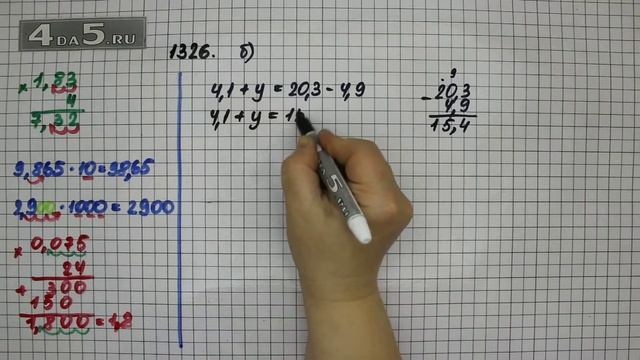 4DA5.RU
1326. б)
× 1,83
4
7,32
9,865 · 10 = 98,65
2,900 · 1000 = 2900
× 0,075
24
+ 300
150
1,800 = 1,8
4,1 + y = 20,3 - 4,9
4,1 + y = 1
9
- 20,3
4,9
15,4